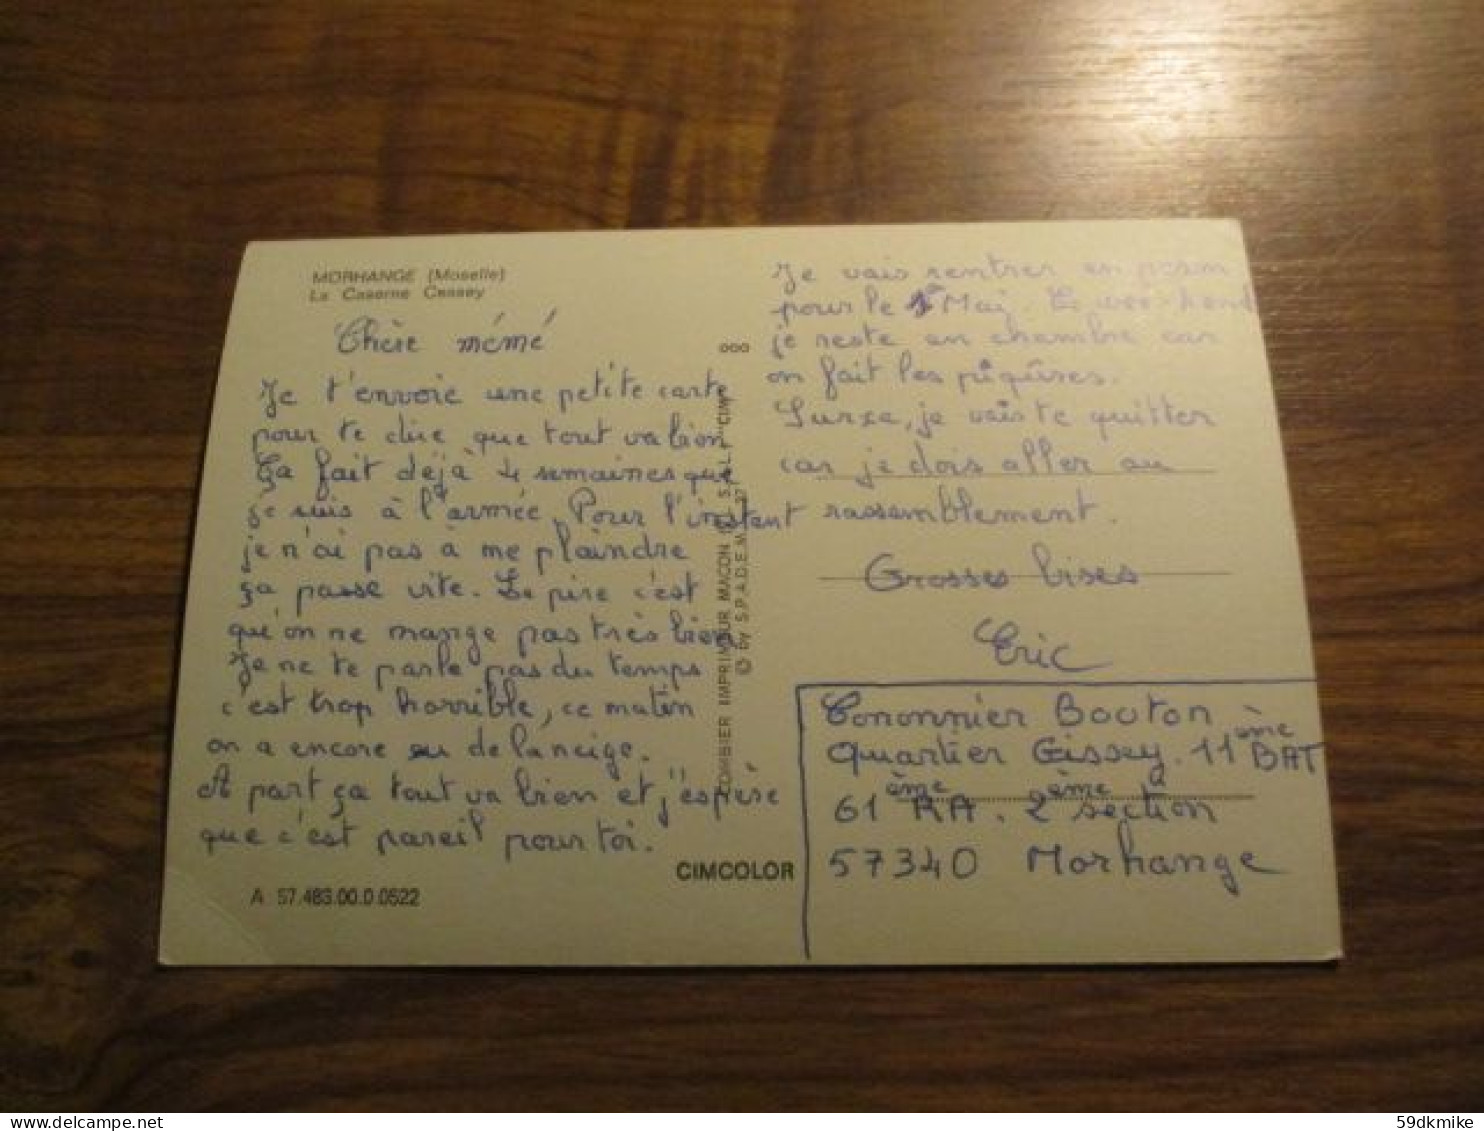 MORHANGE (Moselle)
La Caserne Cessey
Chère mémé
Je t'envoie une petite carte
pour te dire que tout va bien
Ça fait déjà 4 semaines que
je suis à l'armée. Pour l'instant
je n'ai pas à me plaindre
ça passe vite. Le pire c'est
qu'on ne mange pas très bien
Je ne te parle pas du temps
c'est trop horrible, ce matin
on a encore eu de la neige.
A part ça tout va bien et j'espère
que c'est pareil pour toi.
A 57.483.00.0.0522
CIMCOLOR
COMBIER IMPRIMEUR MACON S.A.L.F. "CIM"
© by S.P.A.D.E.M.
Je vais rentrer en perm
pour le 1er Mai. Le week-end
je reste en chambre car
on fait les piqûres.
je vais te quitter
car je dois aller au
rassemblement.
Grosses bises
Eric
Cononnier Bouton
Quartier Cissey. 11ème BAT
61ème RA. 2ème section
57340 Morhange
59dkmike